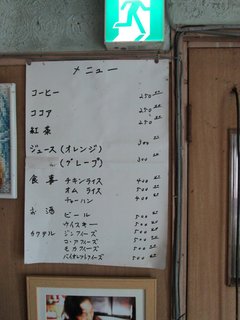 メニュー
コーヒー 250
ココア 250
紅茶 250
ジュース (オレンジ) 300
(グレープ) 300
食事 チキンライス 400
オムライス 500
チャーハン 400
お酒 ビール 500
ウイスキー 500
カクテル ジンフィーズ 500
コアフィーズ 500
モカフィーズ 500
バイオレットフィーズ 500